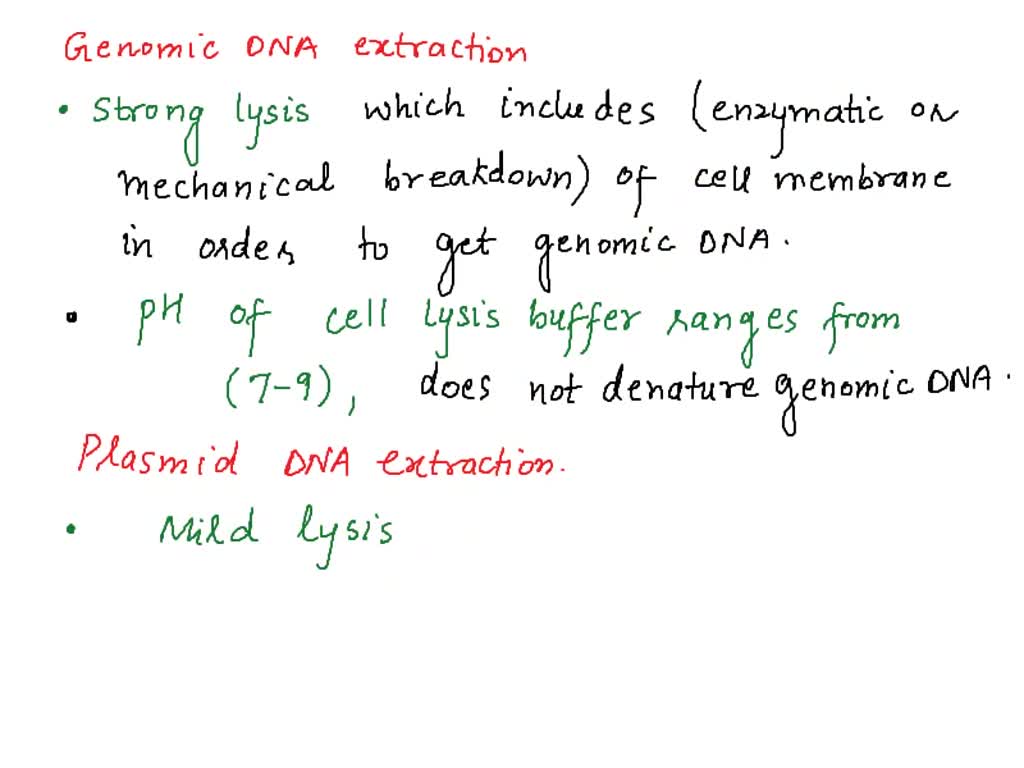 Genomic DNA extraction
• Strong lysis which includes (enzymatic or
mechanical breakdown) of cell membrane
in order to get genomic DNA.
• pH of cell lysis buffer ranges from
(7-9), does not denature genomic DNA.
Plasmid DNA extraction.
• Mild lysis